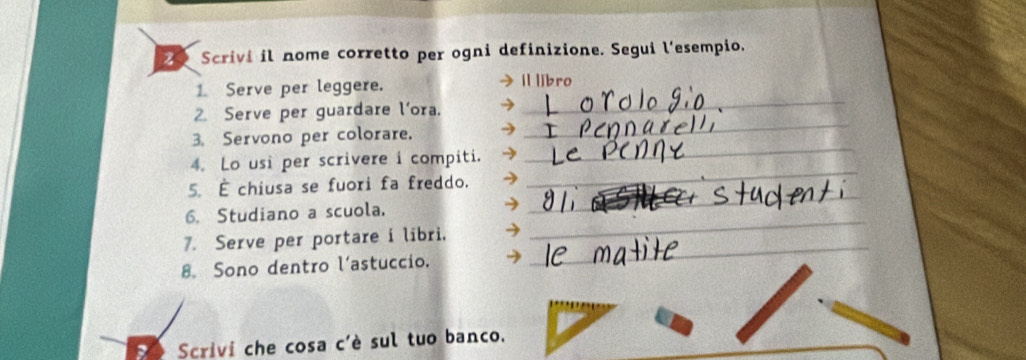 2 Scrivi il nome corretto per ogni definizione. Segui l'esempio.
1. Serve per leggere. → il libro
2. Serve per guardare l'ora. → L orologio.
3. Servono per colorare. → I pennarelli
4. Lo usi per scrivere i compiti. → Le penne
5. È chiusa se fuori fa freddo. →
6. Studiano a scuola. → gli studenti
7. Serve per portare i libri. →
8. Sono dentro l'astuccio. → le matite
Scrivi che cosa c'è sul tuo banco.